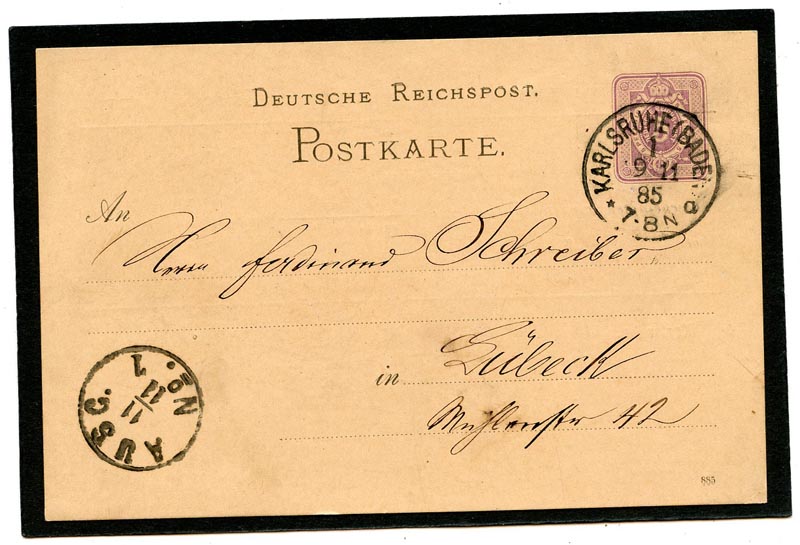 DEUTSCHE REICHSPOST.
POSTKARTE.
KARLSRUHE (BADEN)
1
9 11
85
* 7-8N a
An
Herrn Ferdinand Schreiber
in Lübeck
Mühlenstr 42
AUSG.
No. 1
11/11
885